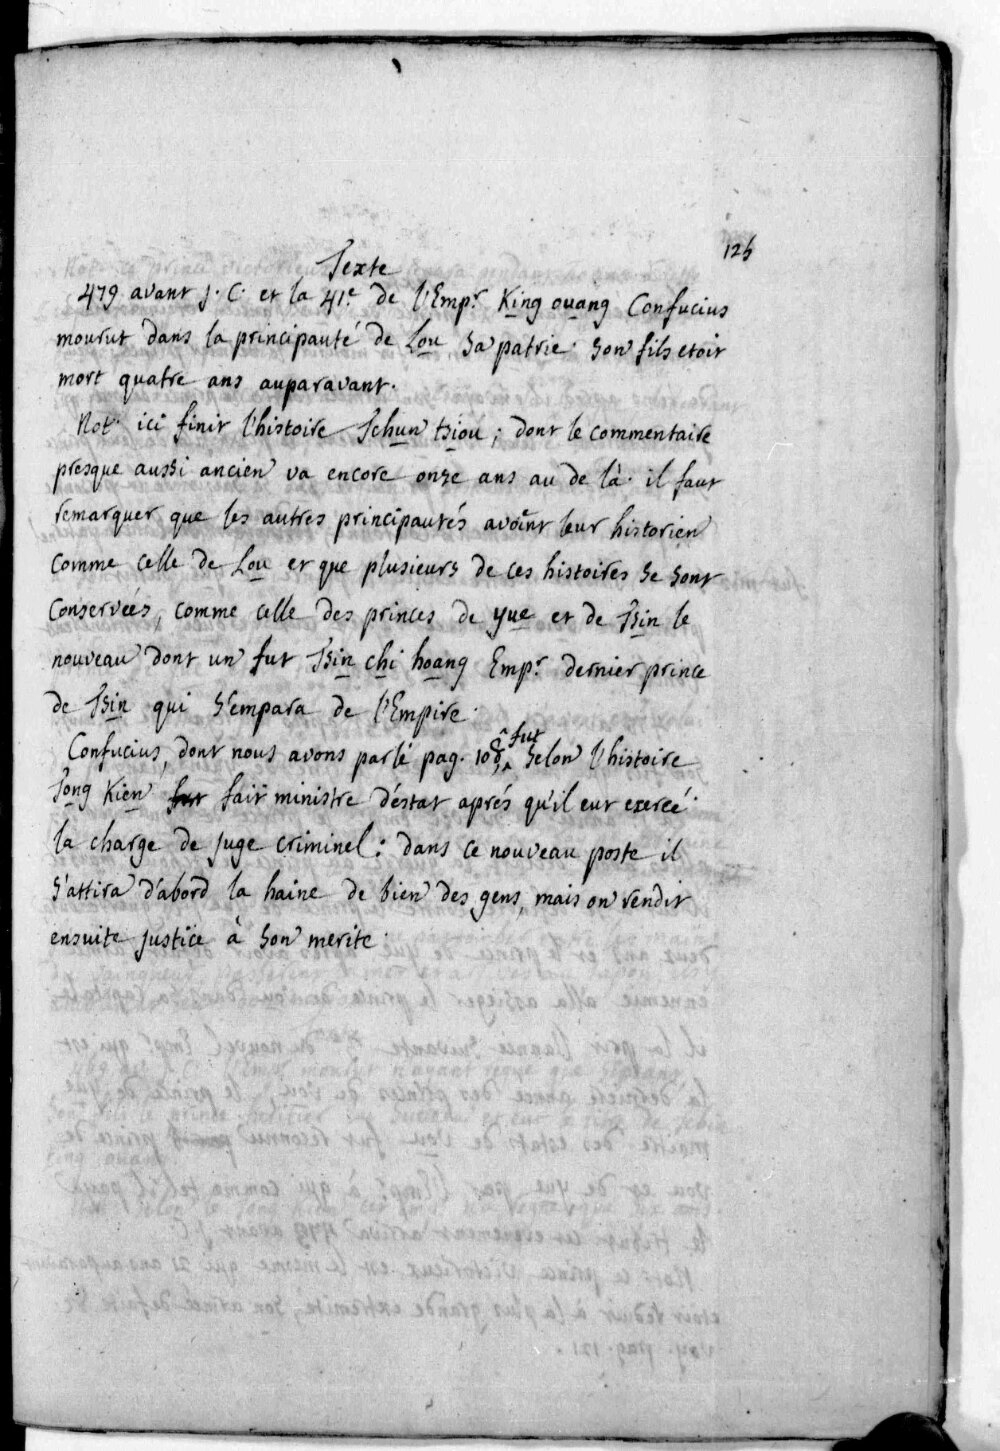 125
Texte
479 avant J. C. et la 41.e de l'Emp.r King ouang Confucius
mourut dans la principauté de Lou sa patrie. son fils etoit
mort quatre ans auparavant.
Not. ici finit l'histoire Tchun tsiou ; dont le commentaire
presque aussi ancien va encore onze ans au de là. il faut
remarquer que les autres principautés avoint leur historien
comme celle de Lou et que plusieurs de ces histoires se sont
conservées, comme celle des princes de yue et de Tsin le
nouveau dont un fut Tsin chi hoang Emp.r dernier prince
de Tsin qui s'empara de l'Empire.
Confucius, dont nous avons parlé pag. fut selon l'histoire
Tong Kien fut fait ministre d'éstat aprés qu'il eut exercé
la charge de juge criminel : dans ce nouveau poste il
s'attira d'abord la haine de bien des gens, mais on rendit
ensuite justice à son merite.